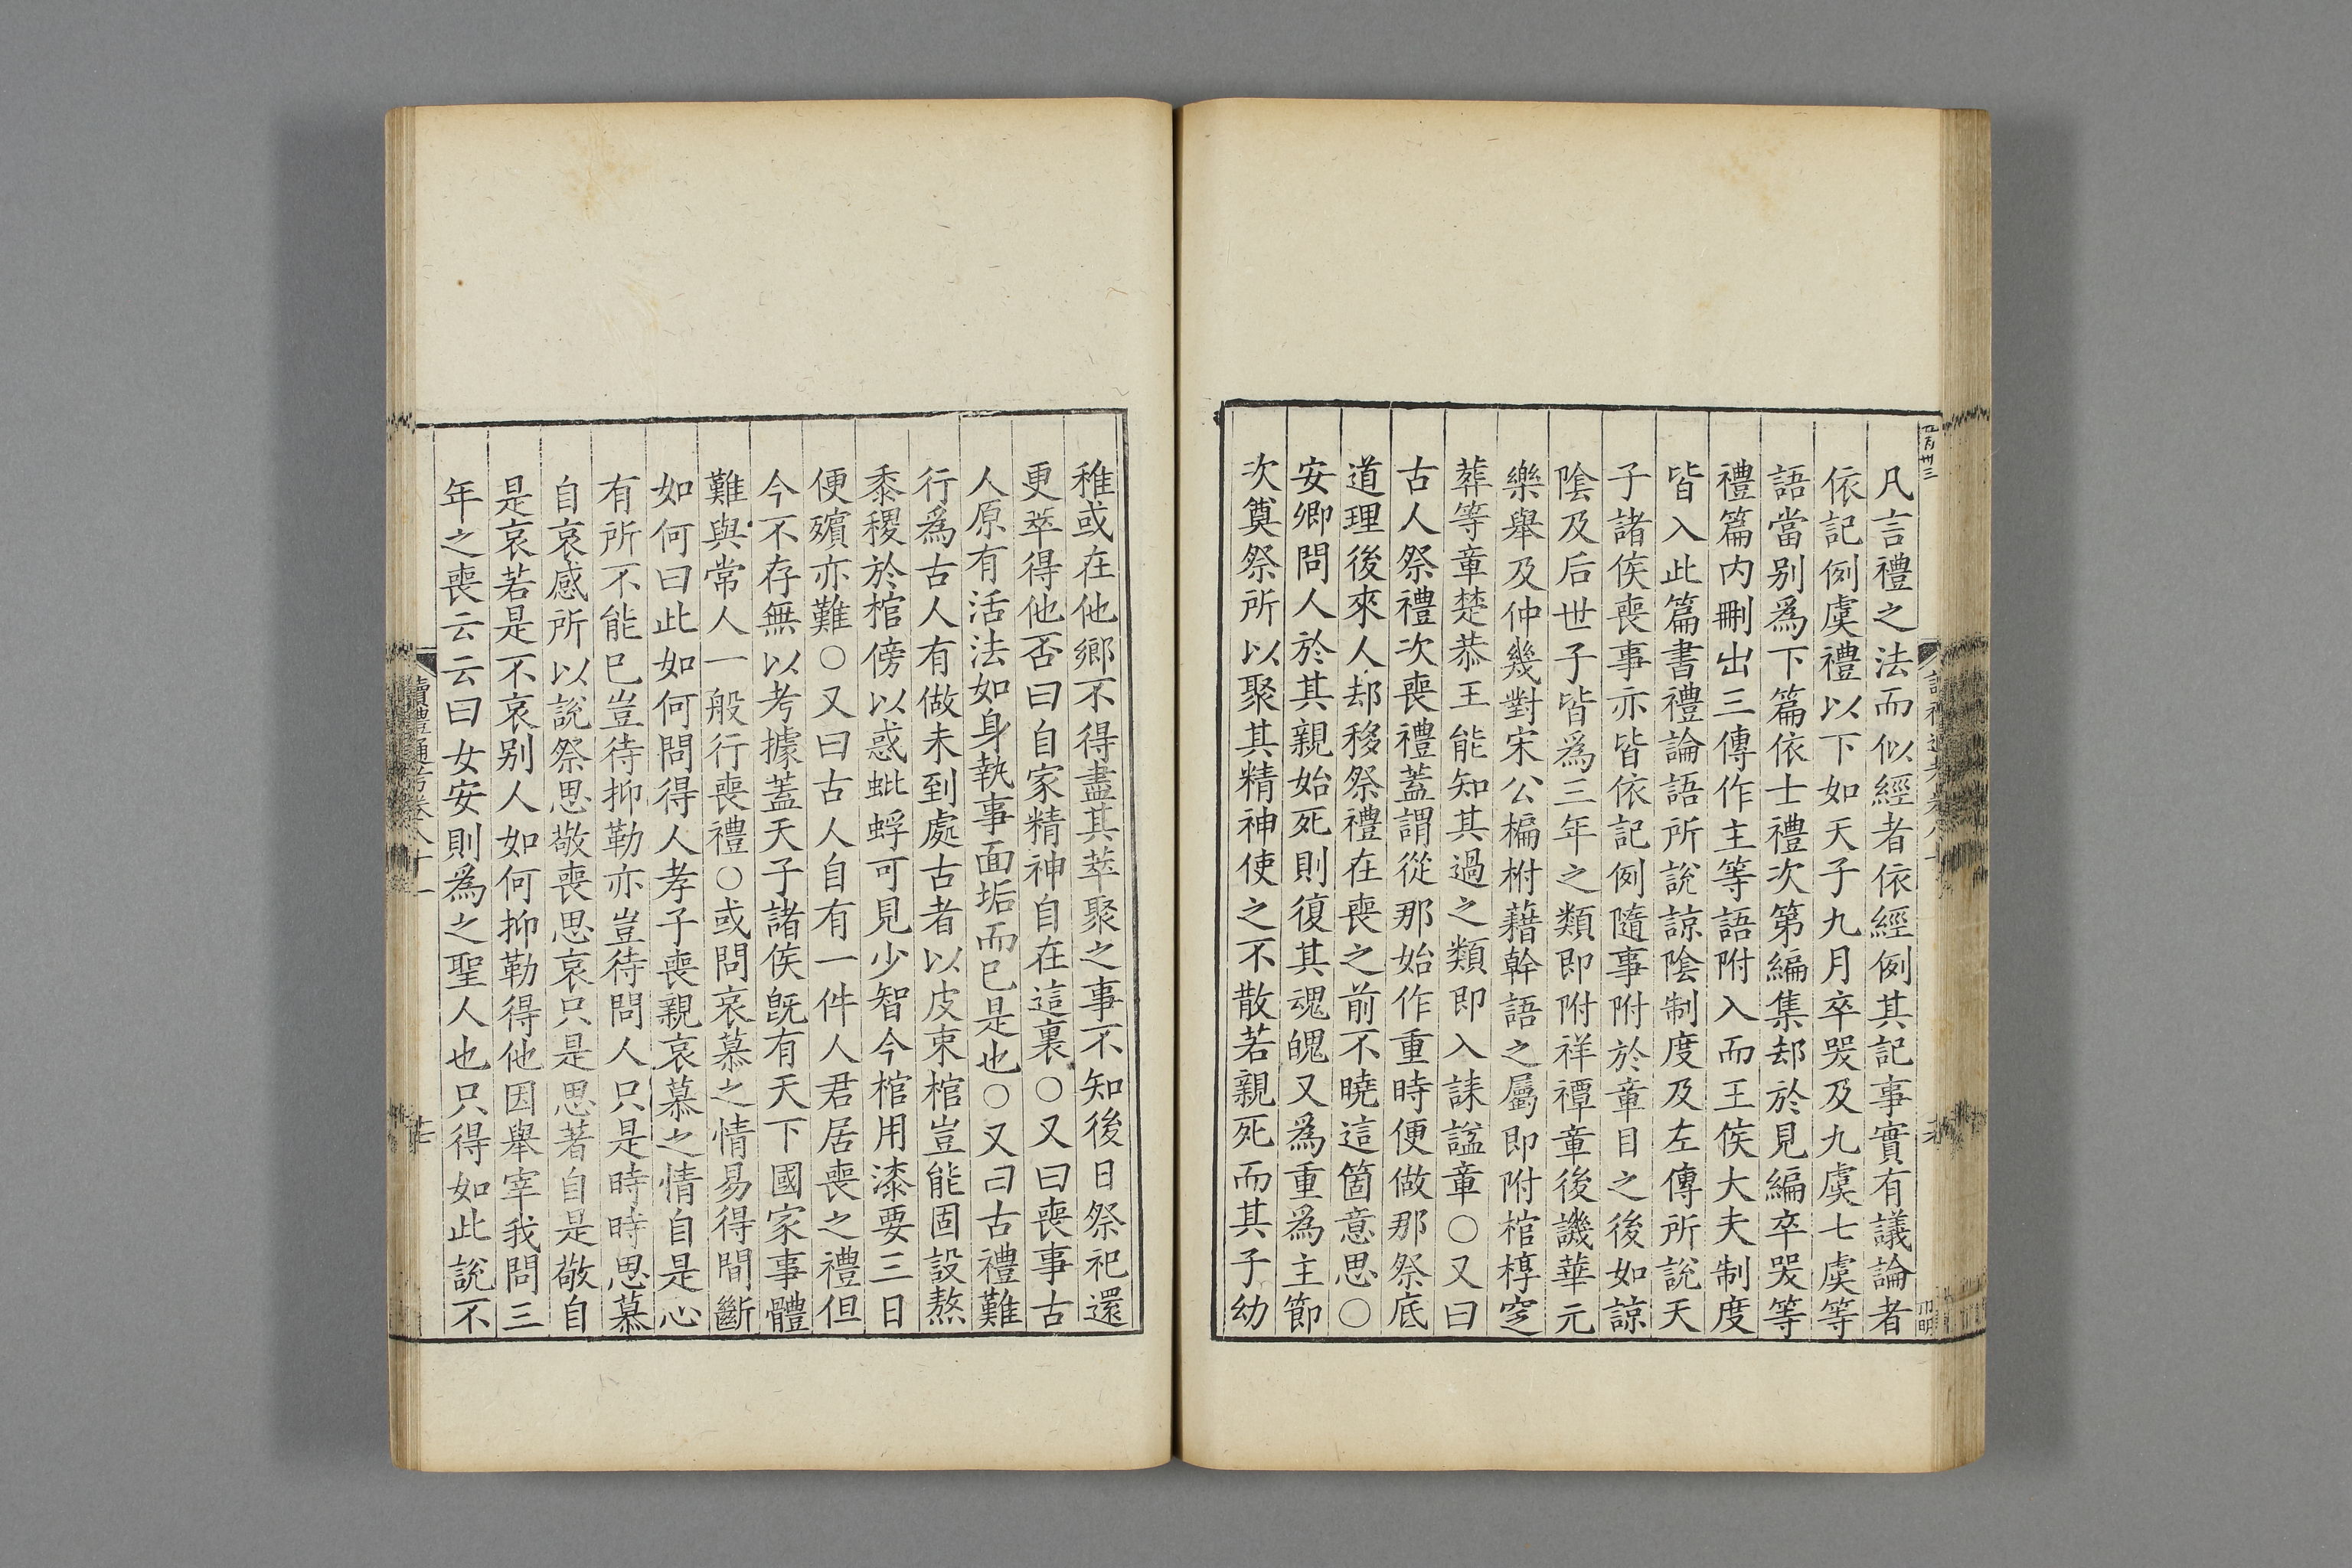 凡言禮之法而似經者依經例其記事實有議論者
依記例虞禮以下如天子九月卒哭及九虞七虞等
語當別爲下篇依士禮次第編集却於見編卒哭等
禮篇内刪出三傳作主等語附入而王侯大夫制度
皆入此篇書禮論語所説諒陰制度及左傳所説天
子諸侯喪事亦皆依記例隨事附於章目之後如諒
陰及后世子皆爲三年之類即附祥禫章後譏華元
樂舉及仲幾對宋公楄柎藉幹語之屬即附棺椁窆
葬等章楚恭王能知其過之類即入誄諡章○又曰
古人祭禮次喪禮蓋謂從那始作重時便做那祭底
道理後來人却移祭禮在喪之前不曉這箇意思○
安卿問人於其親始死則復其魂魄又爲重爲主節
次奠祭所以聚其精神使之不散若親死而其子幼
稚或在他鄉不得盡其萃聚之事不知後日祭祀還
更萃得他否曰自家精神自在這裏○又曰喪事古
人原有活法如身執事面垢而已是也○又曰古禮難
行爲古人有做未到處古者以皮束棺豈能固設熬
黍稷於棺傍以惑蚍蜉可見少智今棺用漆要三日
便殯亦難○又曰古人自有一件人君居喪之禮但
今不存無以考據蓋天子諸侯旣有天下國家事體
難與常人一般行喪禮○或問哀慕之情易得間斷
如何曰此如何問得人孝子喪親哀慕之情自是心
有所不能已豈待抑勒亦豈待問人只是時時思慕
自哀感所以說祭思敬喪思哀只是思著自是敬自
是哀若是不哀别人如何抑勒得他因舉宰我問三
年之喪云云曰女安則爲之聖人也只得如此說不
讀禮通考卷八十一